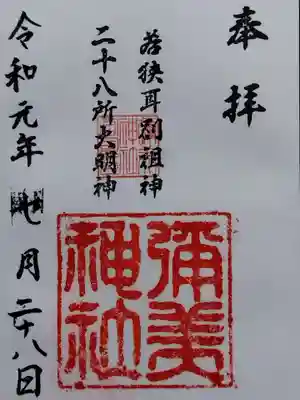 奉拝
若狭耳別祖神
二十八所大明神
神社
彌美神社
令和元年
月二十八日